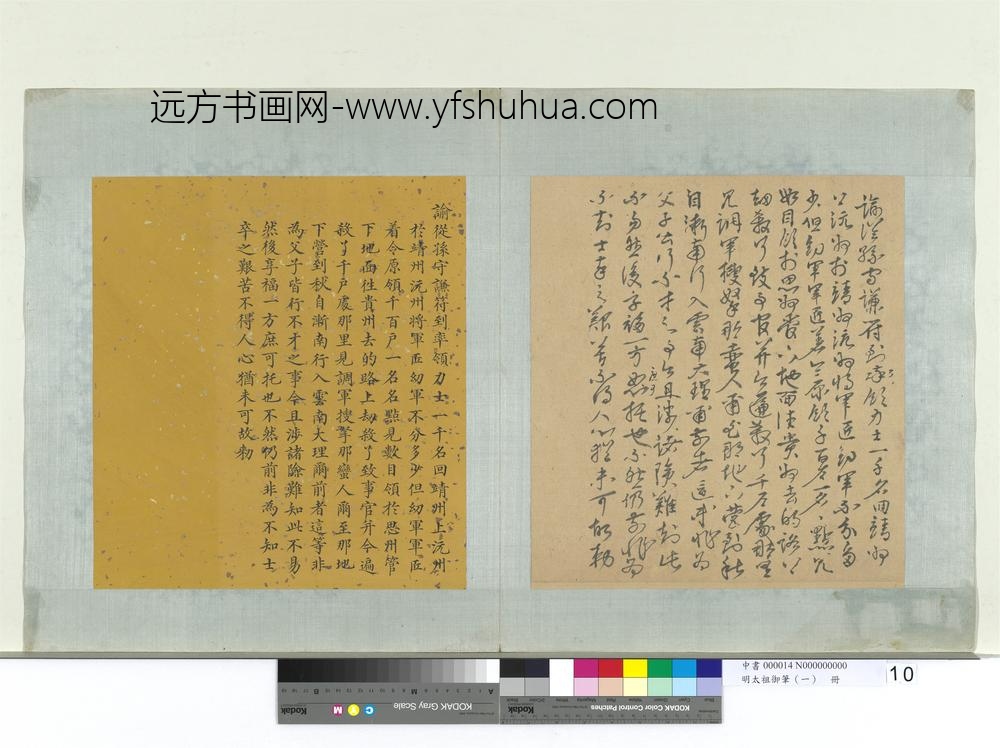 远方书画网-www.yfshuhua.com
諭從孫守謙符到率領力士一千名回靖州
上沅州於靖州沅州將軍匠幼軍不分多
少但幼軍軍匠着令原領千百戶一名名點見
數目領於思州管下地面往貴州去的路上
劫殺了致事官并令遍殺了千戶處那里
見調軍搜拏那蠻人爾至那地下營到秋
自漸南行入雲南大理爾前者這等非為
父子皆行不才之事今且涉諸險難知此
不易然後享福一方庶可托也不然仍前非為
不知士卒之艱苦不得人心猶未可故勑
諭從孫守謙符到率領力士一千名回靖州上沅州
於靖州沅州將軍匠幼軍不分多少但幼軍軍匠
着令原領千百戶一名名點見數目領於思州管
下地面往貴州去的路上劫殺了致事官并令遍
殺了千戶處那里見調軍搜拏那蠻人爾至那地
下營到秋自漸南行入雲南大理爾前者這等非
為父子皆行不才之事今且涉諸險難知此不易
然後享福一方庶可托也不然仍前非為不知士
卒之艱苦不得人心猶未可故勑
KODAK Gray Scale
Kodak
C Y M
KODAK Color Control Patches
Kodak
中書 000014 N000000000
明太祖御筆（一） 冊
10